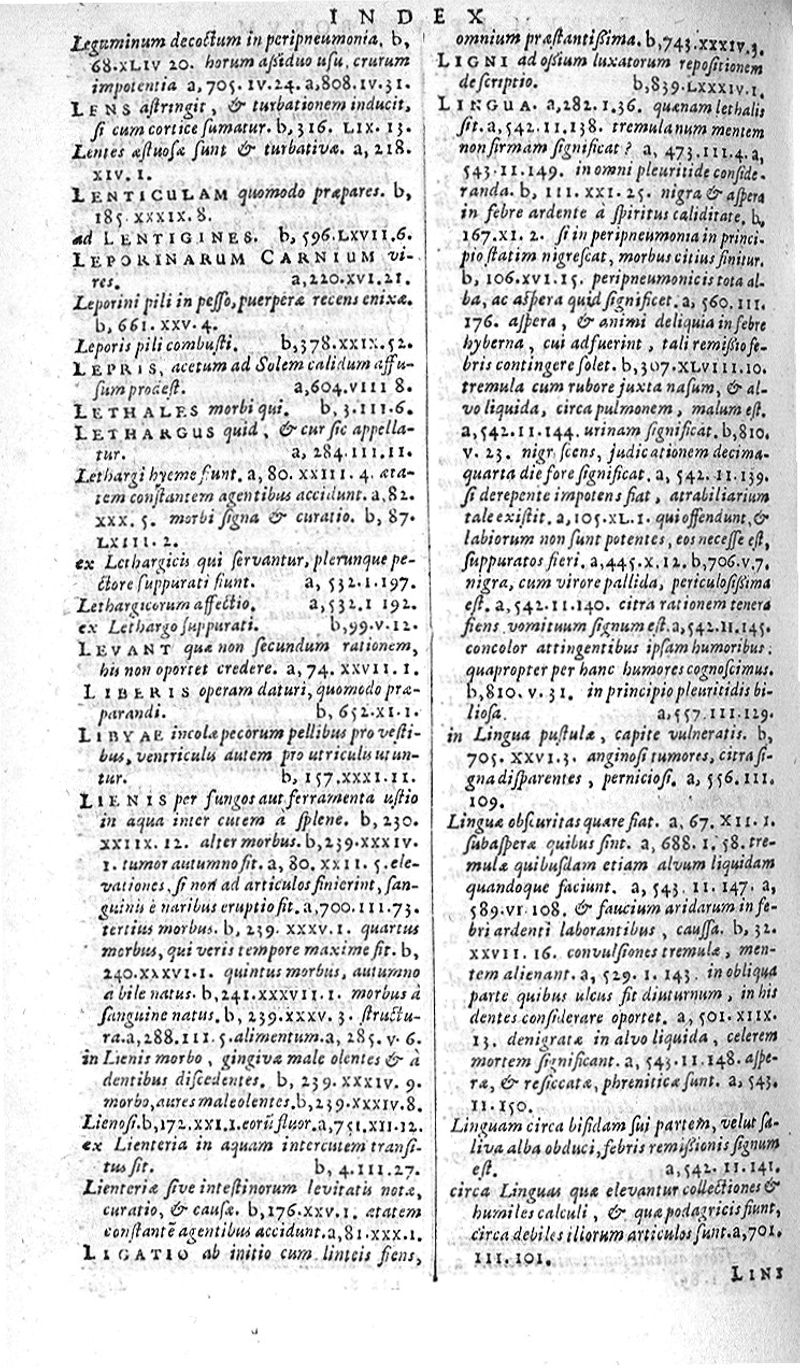 INDEX
Leguminum decoctum in peripneumonia. b,
68.XLIV 20. horum aſsiduo uſu, crurum
impotentia a, 705. IV. 24. a, 808. IV. 31.
LENS aſtringit, & turbationem inducit,
ſi cum cortice ſumatur. b, 316. LIX. 13.
Lentes æſtuoſæ ſunt & turbativæ. a, 218.
XIV. 1.
LENTICULAM quomodo præpares. b,
185. XXXIX. 8.
ad LENTIGINES. b, 596. LXVII. 6.
LEPORINARUM CARNIUM vi-
res. a, 220. XVI. 21.
Leporini pili in peſſo, puerperæ recens enixæ.
b, 661. XXV. 4.
Leporis pili combuſti. b, 378. XXIX. 52.
LEPRIS, acetum ad Solem calidum affu-
ſum prodeſt. a, 604. VIII 8.
LETHALES morbi qui. b, 3. III. 6.
LETHARGUS quid, & cur ſic appella-
tur. a, 284. III. 11.
Lethargi hyeme fiunt. a, 80. XXIII. 4. æta-
tem conſtantem agentibus accidunt. a, 82.
XXX. 5. morbi ſigna & curatio. b, 87.
LXIII. 2.
ex Lethargicis qui ſervantur, plerunque pe-
ctore ſuppurati fiunt. a, 532. I. 197.
Lethargicorum affectio. a, 532. I 192.
ex Lethargo ſuppurati. b, 99. V. 12.
LEVANT quæ non ſecundum rationem,
his non oportet credere. a, 74. XXVII. 1.
LIBERIS operam daturi, quomodo præ-
parandi. b, 652. XI. 1.
LIBYAE incolæ pecorum pellibus pro veſti-
bus, ventriculis autem pro utriculis utun-
tur. b, 157. XXXI. 11.
LIENIS per fungos aut ferramenta uſtio
in aqua inter cutem à ſplene. b, 230.
XXIIX. 12. alter morbus. b, 239. XXXIV.
1. tumor autumno fit. a, 80. XXII. 5. ele-
vationes, ſi non ad articulos finierint, ſan-
guinis è naribus eruptio fit. a, 700. III. 73.
tertius morbus. b, 239. XXXV. 1. quartus
morbus, qui veris tempore maxime fit. b,
240. XXXVI. 1. quintus morbus, autumno
a bile natus. b, 241. XXXVII. 1. morbus à
ſanguine natus. b, 239. XXXV. 3. ſtructu-
ra. a, 288. III. 5. alimentum. a, 285. V. 6.
in Lienis morbo, gingivæ male olentes & à
dentibus diſcedentes. b, 239. XXXIV. 9.
morbo, aures male olentes. b, 239. XXXIV. 8.
Lienoſi. b, 172. XXI. 1. eorū fluor. a, 751. XII. 12.
ex Lienteria in aquam intercutem tranſi-
tus fit. b, 4. III. 27.
Lienteriæ ſive inteſtinorum levitatis notæ,
curatio, & cauſæ. b, 176. XXV. 1. ætatem
conſtantē agentibus accidunt. a, 81. XXX. 1.
LIGATIO ab initio cum linteis fiens,
omnium præſtantiſsima. b, 743. XXXIV. 3.
LIGNI ad oſſium luxatorum repoſitionem
deſcriptio. b, 839. LXXXIV. 1.
LINGUA. a, 282. I. 36. quænam lethalis
ſit. a, 542. II. 138. tremula num mentem
non firmam ſignificat? a, 473. III. 4. a,
543. II. 149. in omni pleuritide conſide-
randa. b, III. XXI. 25. nigra & aſpera
in febre ardente à ſpiritus caliditate. b,
167. XI. 2. ſi in peripneumonia in princi-
pio ſtatim nigreſcat, morbus citius finitur.
b, 106. XVI. 15. peripneumonicis tota al-
ba, ac aſpera quid ſignificet. a, 560. III.
176. aſpera, & animi deliquia in febre
hyberna, cui adfuerint, tali remiſsio fe-
bris contingere ſolet. b, 307. XLVIII. 10.
tremula cum rubore juxta naſum, & al-
vo liquida, circa pulmonem, malum eſt.
a, 542. II. 144. urinam ſignificat. b, 810.
V. 23. nigr ſcens, judicationem decima-
quarta die fore ſignificat. a, 542. II. 139.
ſi derepente impotens fiat, atrabiliarium
tale exiſtit. a, 105. XL. 1. qui offendunt, &
labiorum non ſunt potentes, eos neceſſe eſt,
ſuppuratos fieri. a, 445. X. 12. b, 706. V. 7.
nigra, cum virore pallida, periculoſiſsima
eſt. a, 542. II. 140. citra rationem tenera
fiens vomituum ſignum eſt. a, 542. II. 145.
concolor attingentibus ipſam humoribus:
quapropter per hanc humores cognoſcimus.
b, 810. V. 31. in principio pleuritidis bi-
lioſa. a, 557. III. 129.
in Lingua puſtulæ, capite vulneratis. b,
705. XXVI. 3. anginoſi tumores, citra ſi-
gna diſparentes, pernicioſi. a, 556. III.
109.
Linguæ obſcuritas quare fiat. a, 67. XII. 1.
ſubaſperæ quibus ſint. a, 688. I. 58. tre-
mulæ quibuſdam etiam alvum liquidam
quandoque faciunt. a, 543. II. 147. a,
589. VI 108. & faucium aridarum in fe-
bri ardenti laborantibus, cauſſa. b, 32.
XXVII. 16. convulſiones tremulæ, men-
tem alienant. a, 529. I. 143. in obliqua
parte quibus ulcus fit diuturnum, in his
dentes conſiderare oportet. a, 501. XIIX.
13. denigratæ in alvo liquida, celerem
mortem ſignificant. a, 543. II. 148. aſpe-
ræ, & reſiccatæ, phreniticæ ſunt. a, 543.
II. 150.
Linguam circa bifidam ſui partem, velut ſa-
liva alba obduci, febris remiſsionis ſignum
eſt. a, 542. II. 141.
circa Linguas quæ elevantur collectiones &
humiles calculi, & quæ podagricis fiunt,
circa debiles iliorum articulos ſunt. a, 701.
III. 101.
LINI